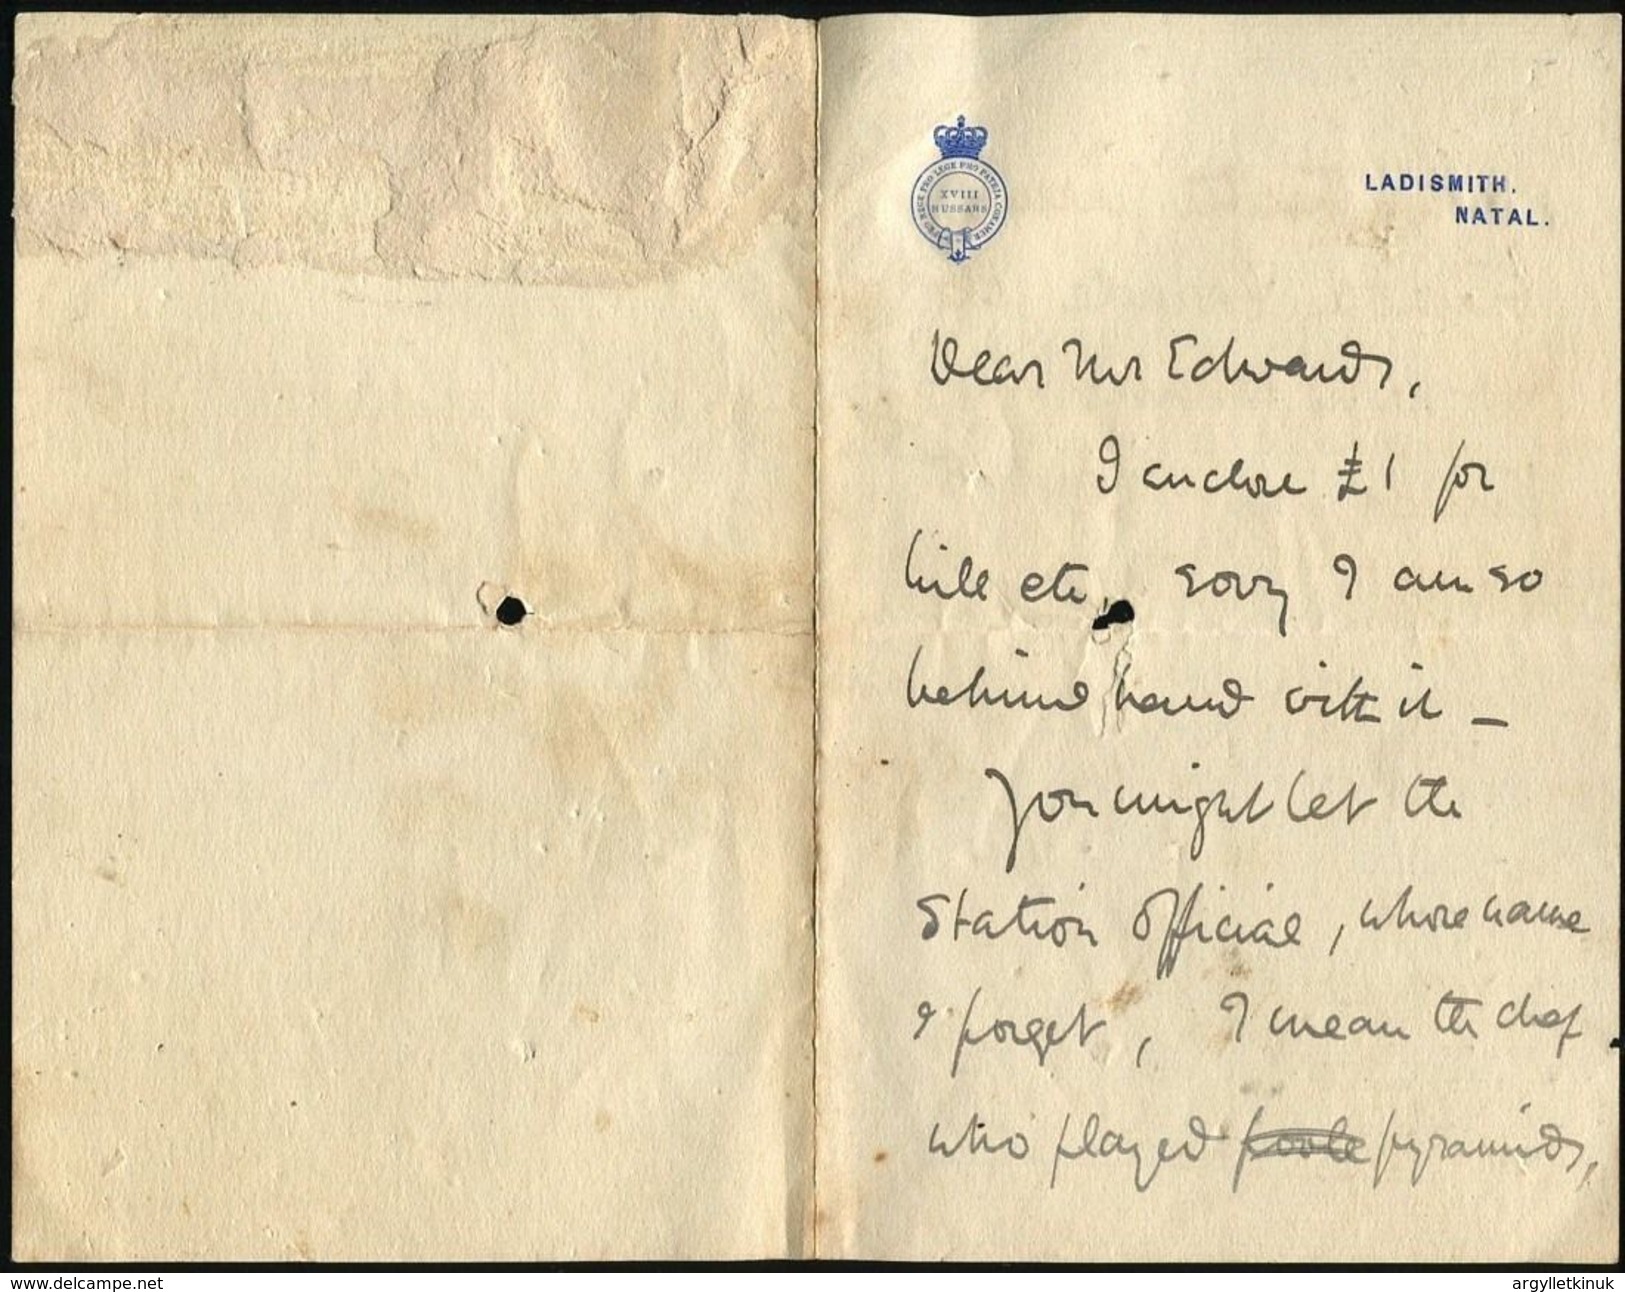 PRO REGE PRO LEGE PRO PATRIA CONAMUR
XVIII
HUSSARS
LADISMITH.
NATAL.
Dear Mr Edwards,
I enclose £1 for
bill etc, sorry I am so
behind hand with it –
You might let the
Station Official, whose name
I forget, I mean the chap
who played poole pyramids,
www.delcampe.net
argylletkinuk